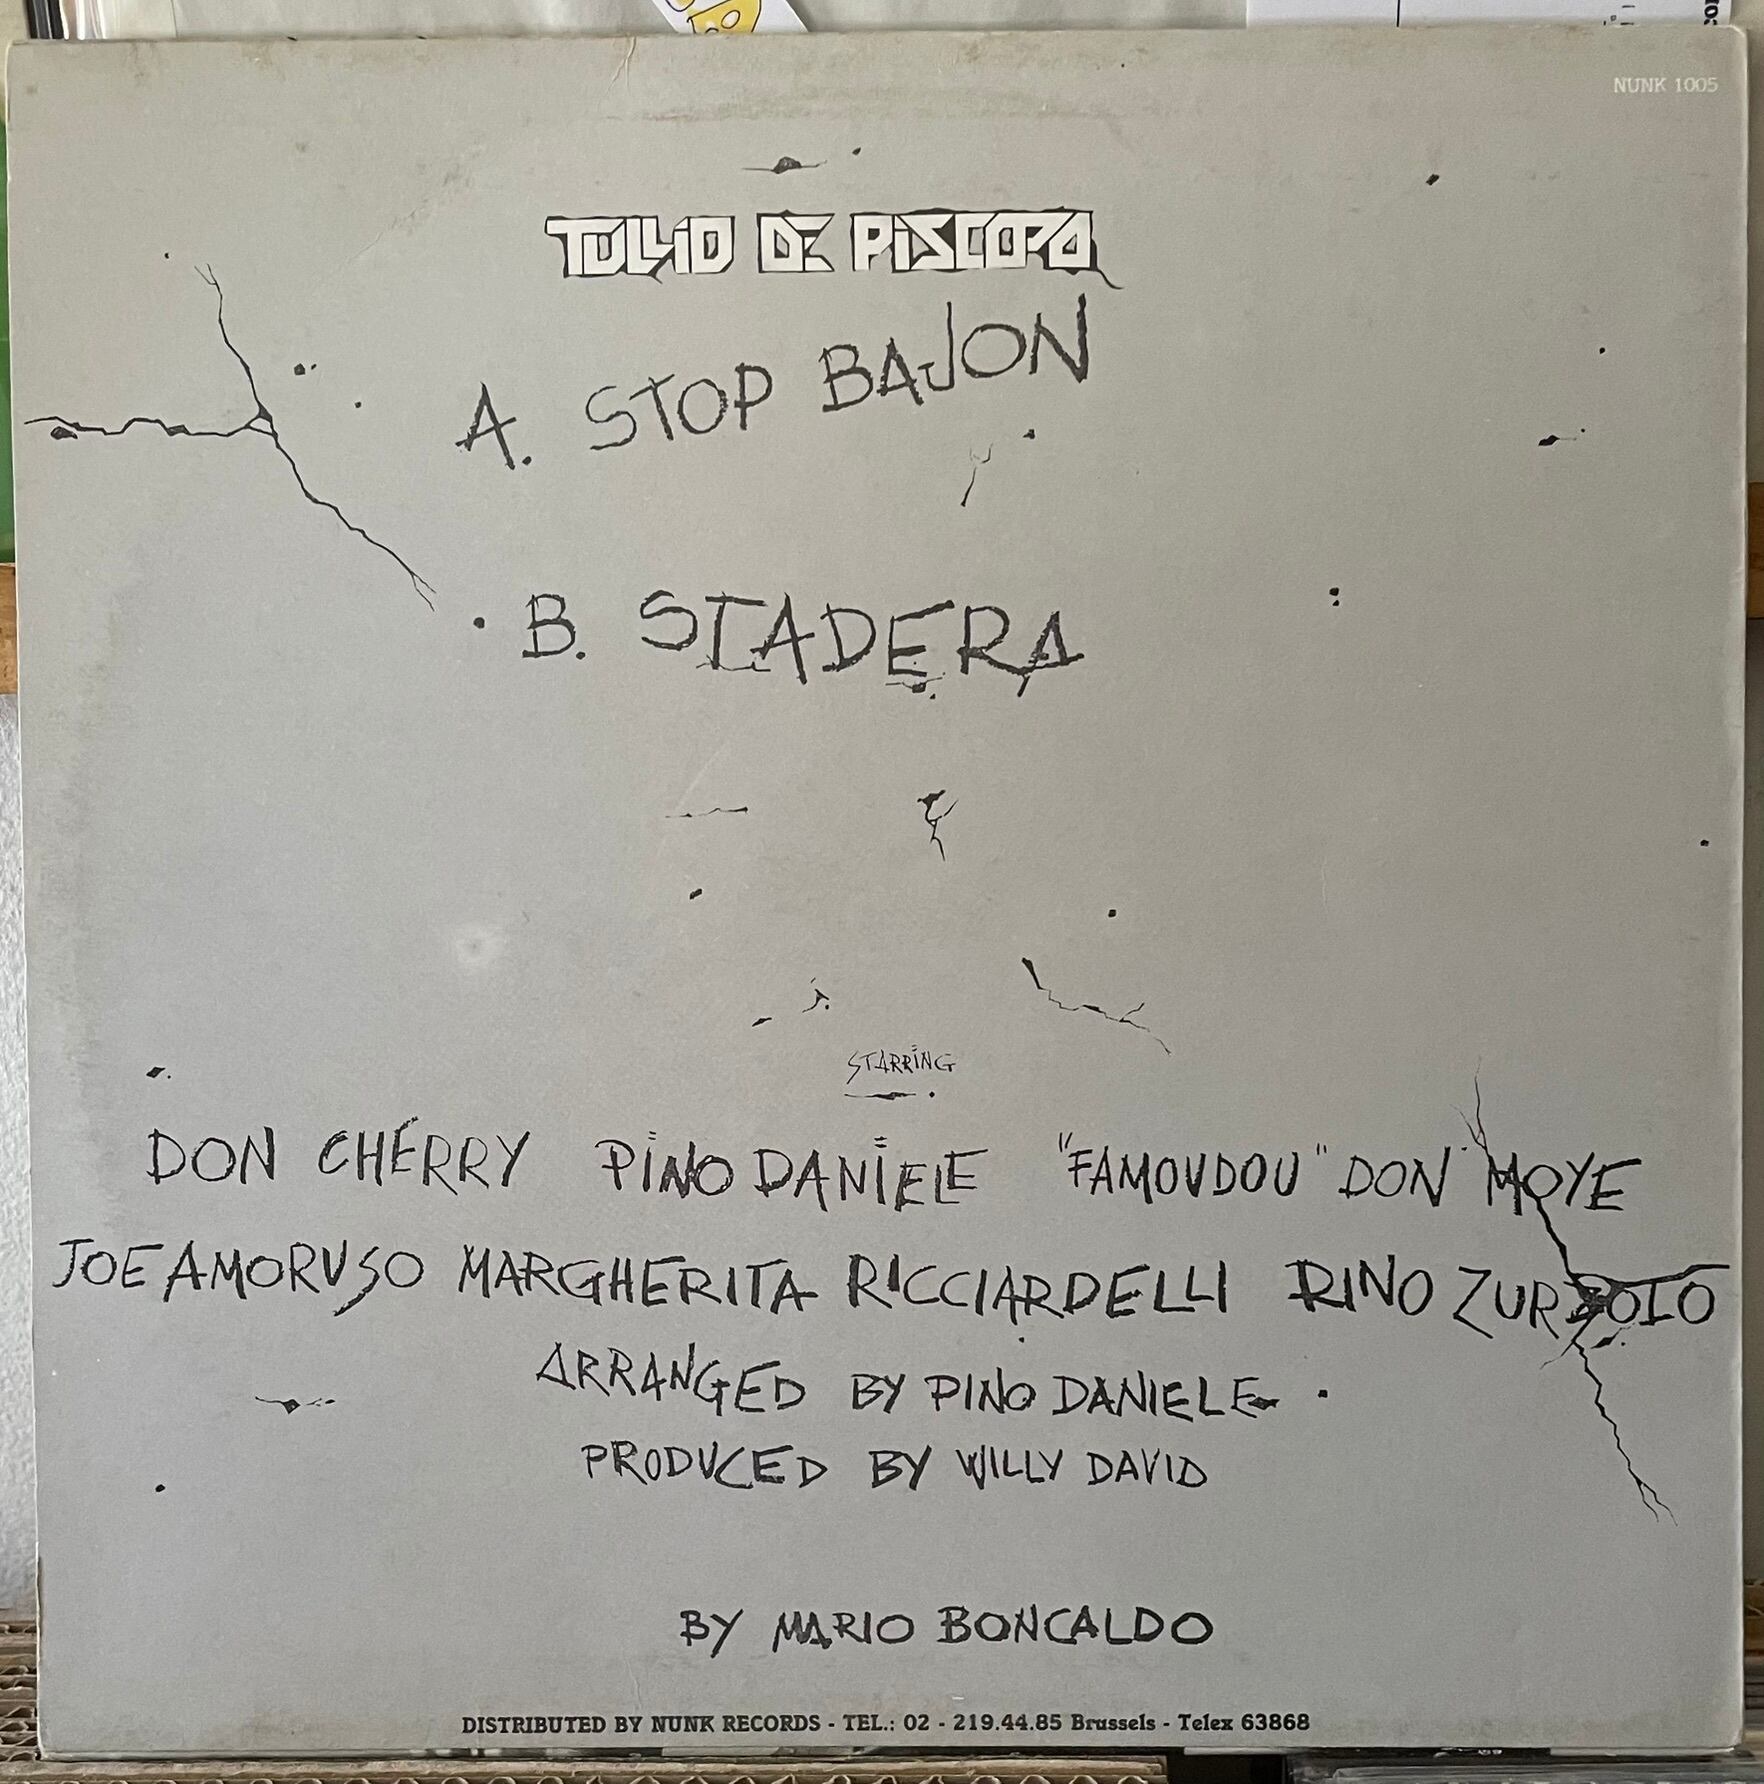 NUNK 1005
TULLIO DE PISCOPO
A. STOP BAJON
B. STADERA
STARRING
DON CHERRY PINO DANIELE "FAMOUDOU" DON MOYE
JOE AMORUSO MARGHERITA RICCIARDELLI RINO ZURZOLO
ARRANGED BY PINO DANIELE
PRODUCED BY WILLY DAVID
BY MARIO BONCALDO
DISTRIBUTED BY NUNK RECORDS - TEL.: 02 - 219.44.85 Brussels - Telex 63868